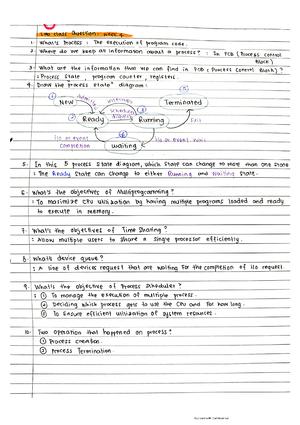 Class Question: Week 4
1. What's Process : The execution of program code.
2. Where do we keep an information about a process? : In PCB (Process Control
Block)
3. What are the information that we can find in PCB (Process Control Block)?
: Process State, program counter, registers.
4. Draw the process state diagram:
①
⑤
New
Admitted
interrupt
Terminated
Ready
Running
Scheduler
Exit
④
I/O or event
completion
waiting
I/O or event wait
5. In this 5 process state diagram, which state can change to more than one state
: The Ready state can change to either Running and Waiting state.
6. What's the objectives of Multiprogramming?
: To maximize CPU utilization by having multiple programs loaded and ready
to execute in memory.
7. What's the objectives of Time Sharing?
: Allow multiple users to share a single processor efficiently.
8. What's device queue?
: A line of devices request that are waiting for the completion of I/o request.
9. What's the objective of Process Scheduler?
: ① To manage the execution of multiple process.
② Deciding which process gets to use the CPU and for how long.
③ To Ensure efficient utilization of system resources.
10. Two operation that happened on process?
① Process creation.
② Process Termination.